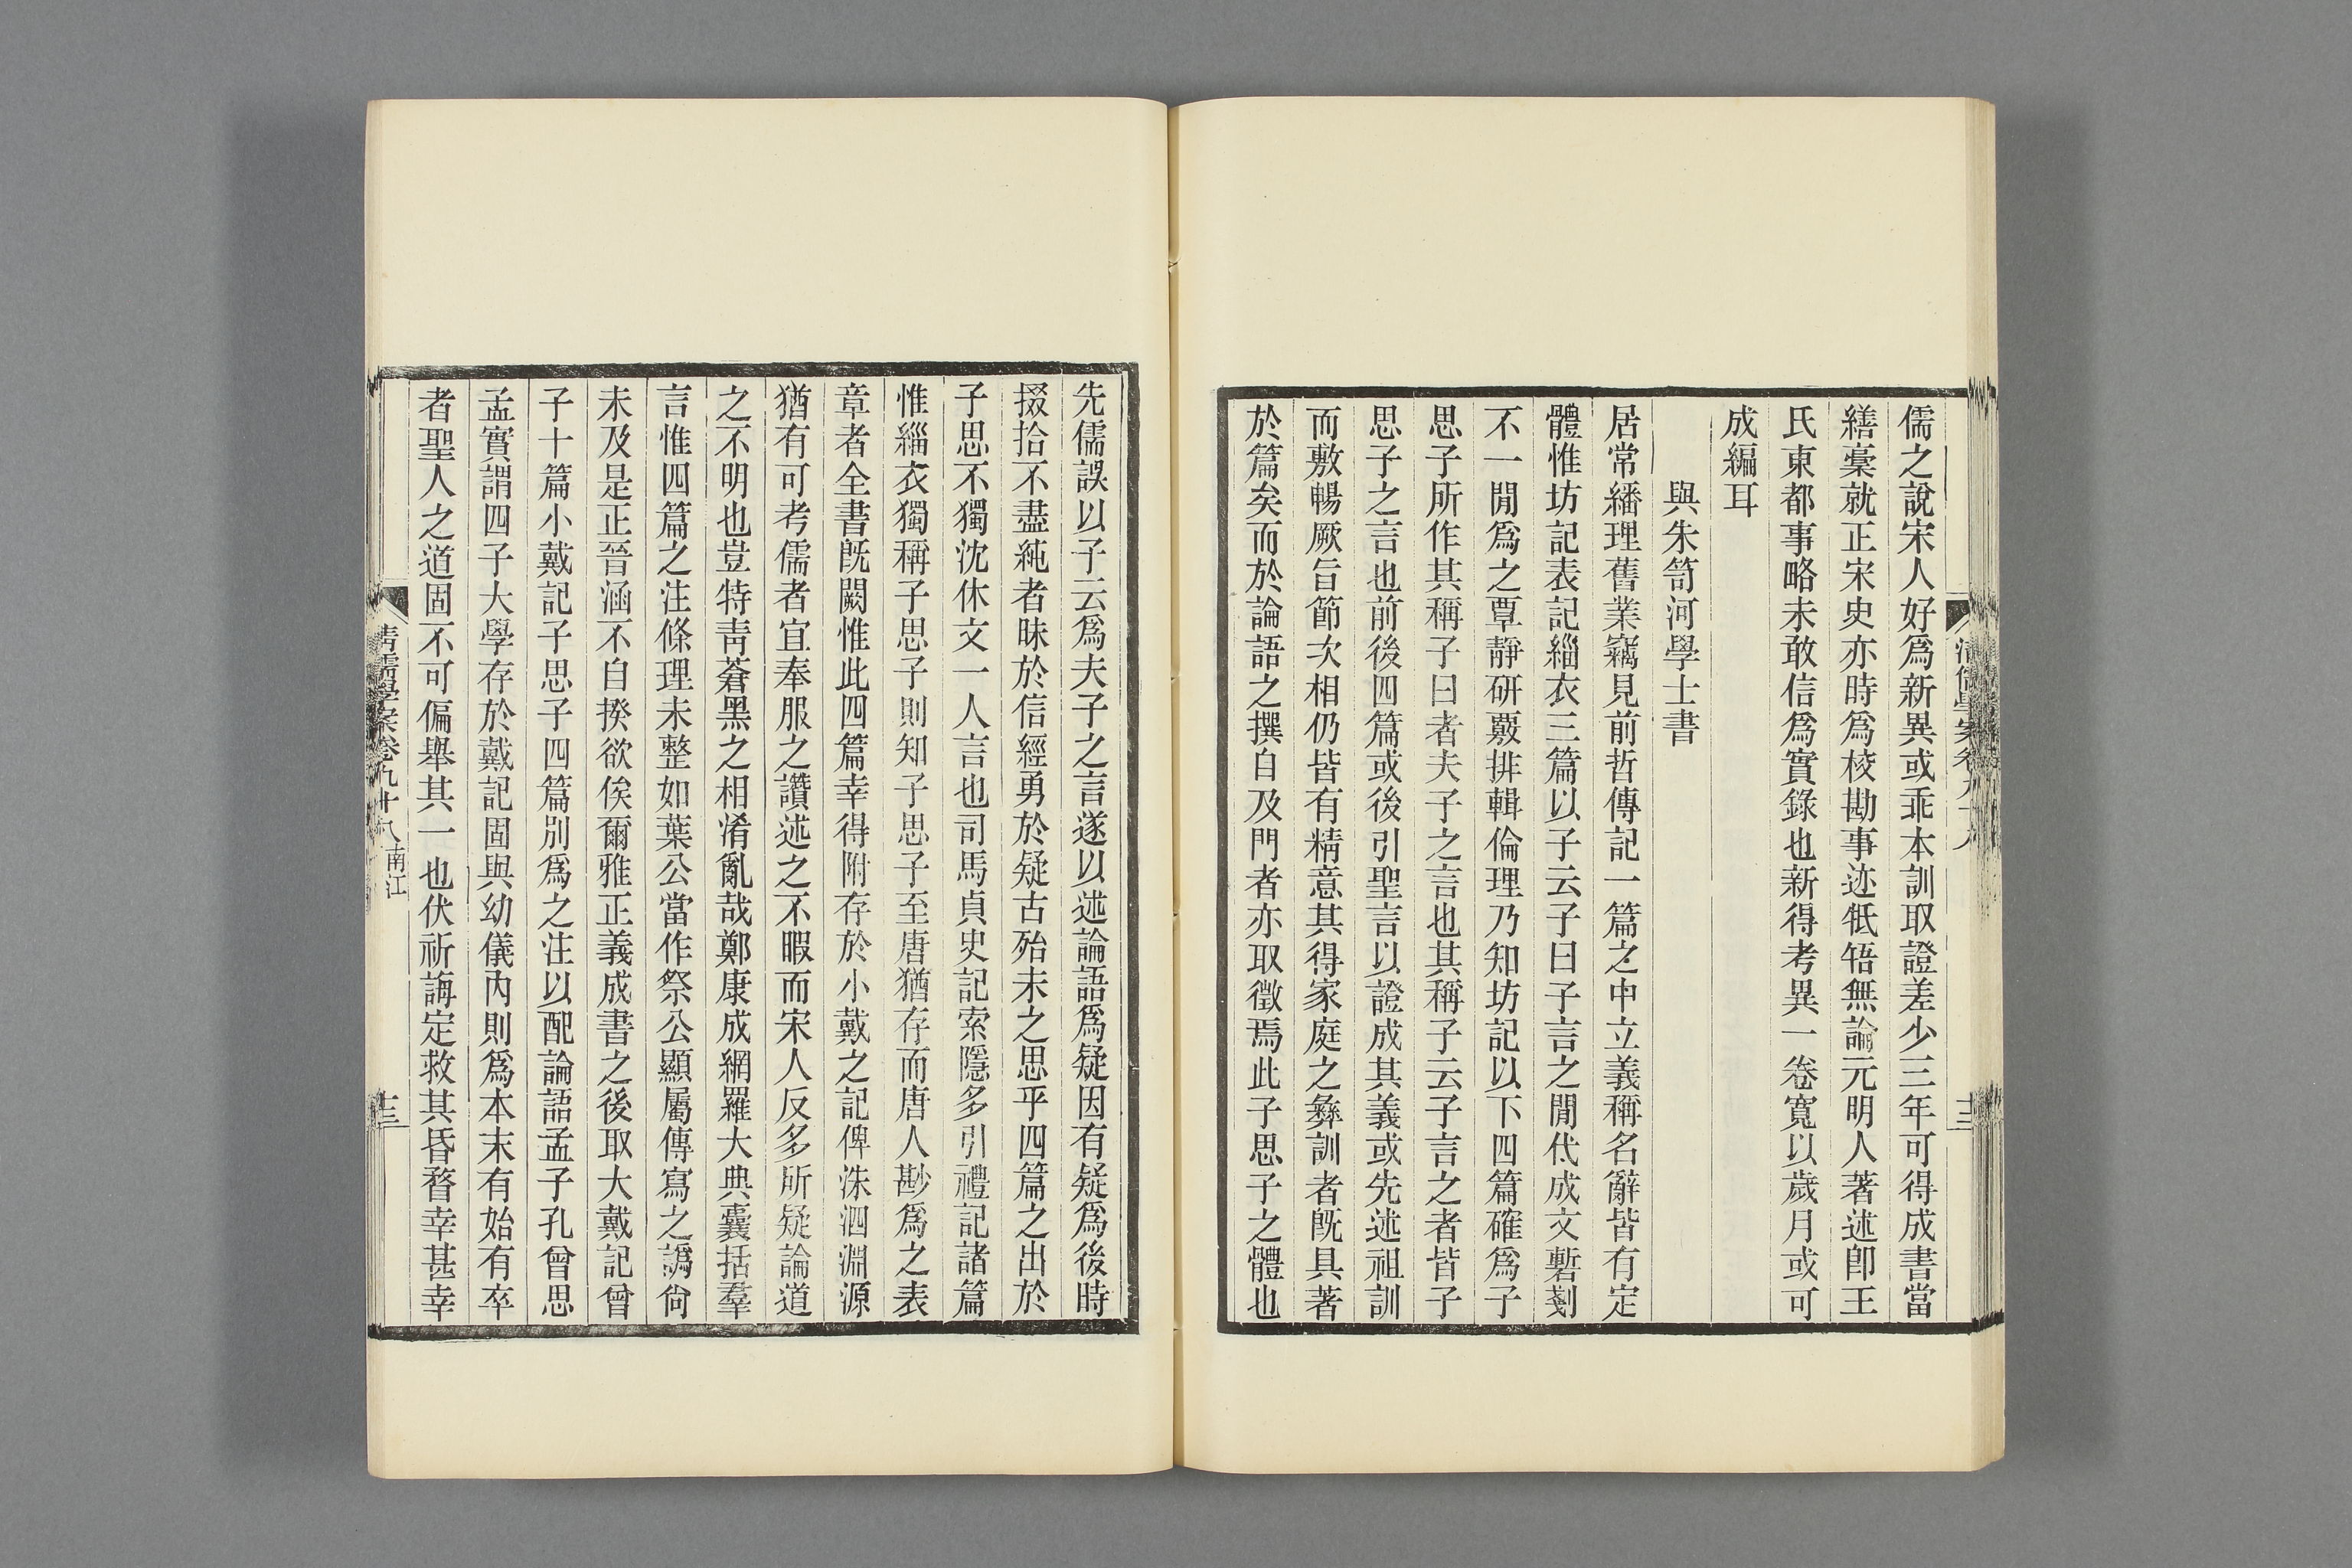 儒之說宋人好爲新異或乖本訓取證差少三年可得成書當
繕稾就正宋史亦時爲校勘事迹牴牾無論元明人著述卽王
氏東都事略未敢信爲實錄也新得考異一卷寬以歲月或可
成編耳
與朱笥河學士書
居常繙理舊業竊見前哲傳記一篇之中立義稱名辭皆有定
體惟坊記表記緇衣三篇以子云子曰子言之閒代成文蹔剗
不一閒爲之覃靜研覈排輯倫理乃知坊記以下四篇確爲子
思子所作其稱子曰者夫子之言也其稱子云子言之者皆子
思子之言也前後四篇或後引聖言以證成其義或先述祖訓
而敷暢厥旨節次相仍皆有精意其得家庭之彝訓者旣具著
於篇矣而於論語之撰自及門者亦取徵焉此子思子之體也
先儒誤以子云爲夫子之言遂以述論語爲疑因有疑爲後時
掇拾不盡純者昧於信經勇於疑古殆未之思乎四篇之出於
子思不獨沈休文一人言也司馬貞史記索隱多引禮記諸篇
惟緇衣獨稱子思子則知子思子至唐猶存而唐人尠爲之表
章者全書旣闕惟此四篇幸得附存於小戴之記俾洙泗淵源
猶有可考儒者宜奉服之讚述之不暇而宋人反多所疑論道
之不明也豈特青蒼黑之相淆亂哉鄭康成網羅大典囊括羣
言惟四篇之注條理未整如葉公當作祭公顯屬傳寫之譌尙
未及是正晉涵不自揆欲俟爾雅正義成書之後取大戴記曾
子十篇小戴記子思子四篇別爲之注以配論語孟子孔曾思
孟實謂四子大學存於戴記固與幼儀內則爲本末有始有卒
者聖人之道固不可偏舉其一也伏祈誨定救其昏瞀幸甚幸
清儒學案卷九十八 南江
十三